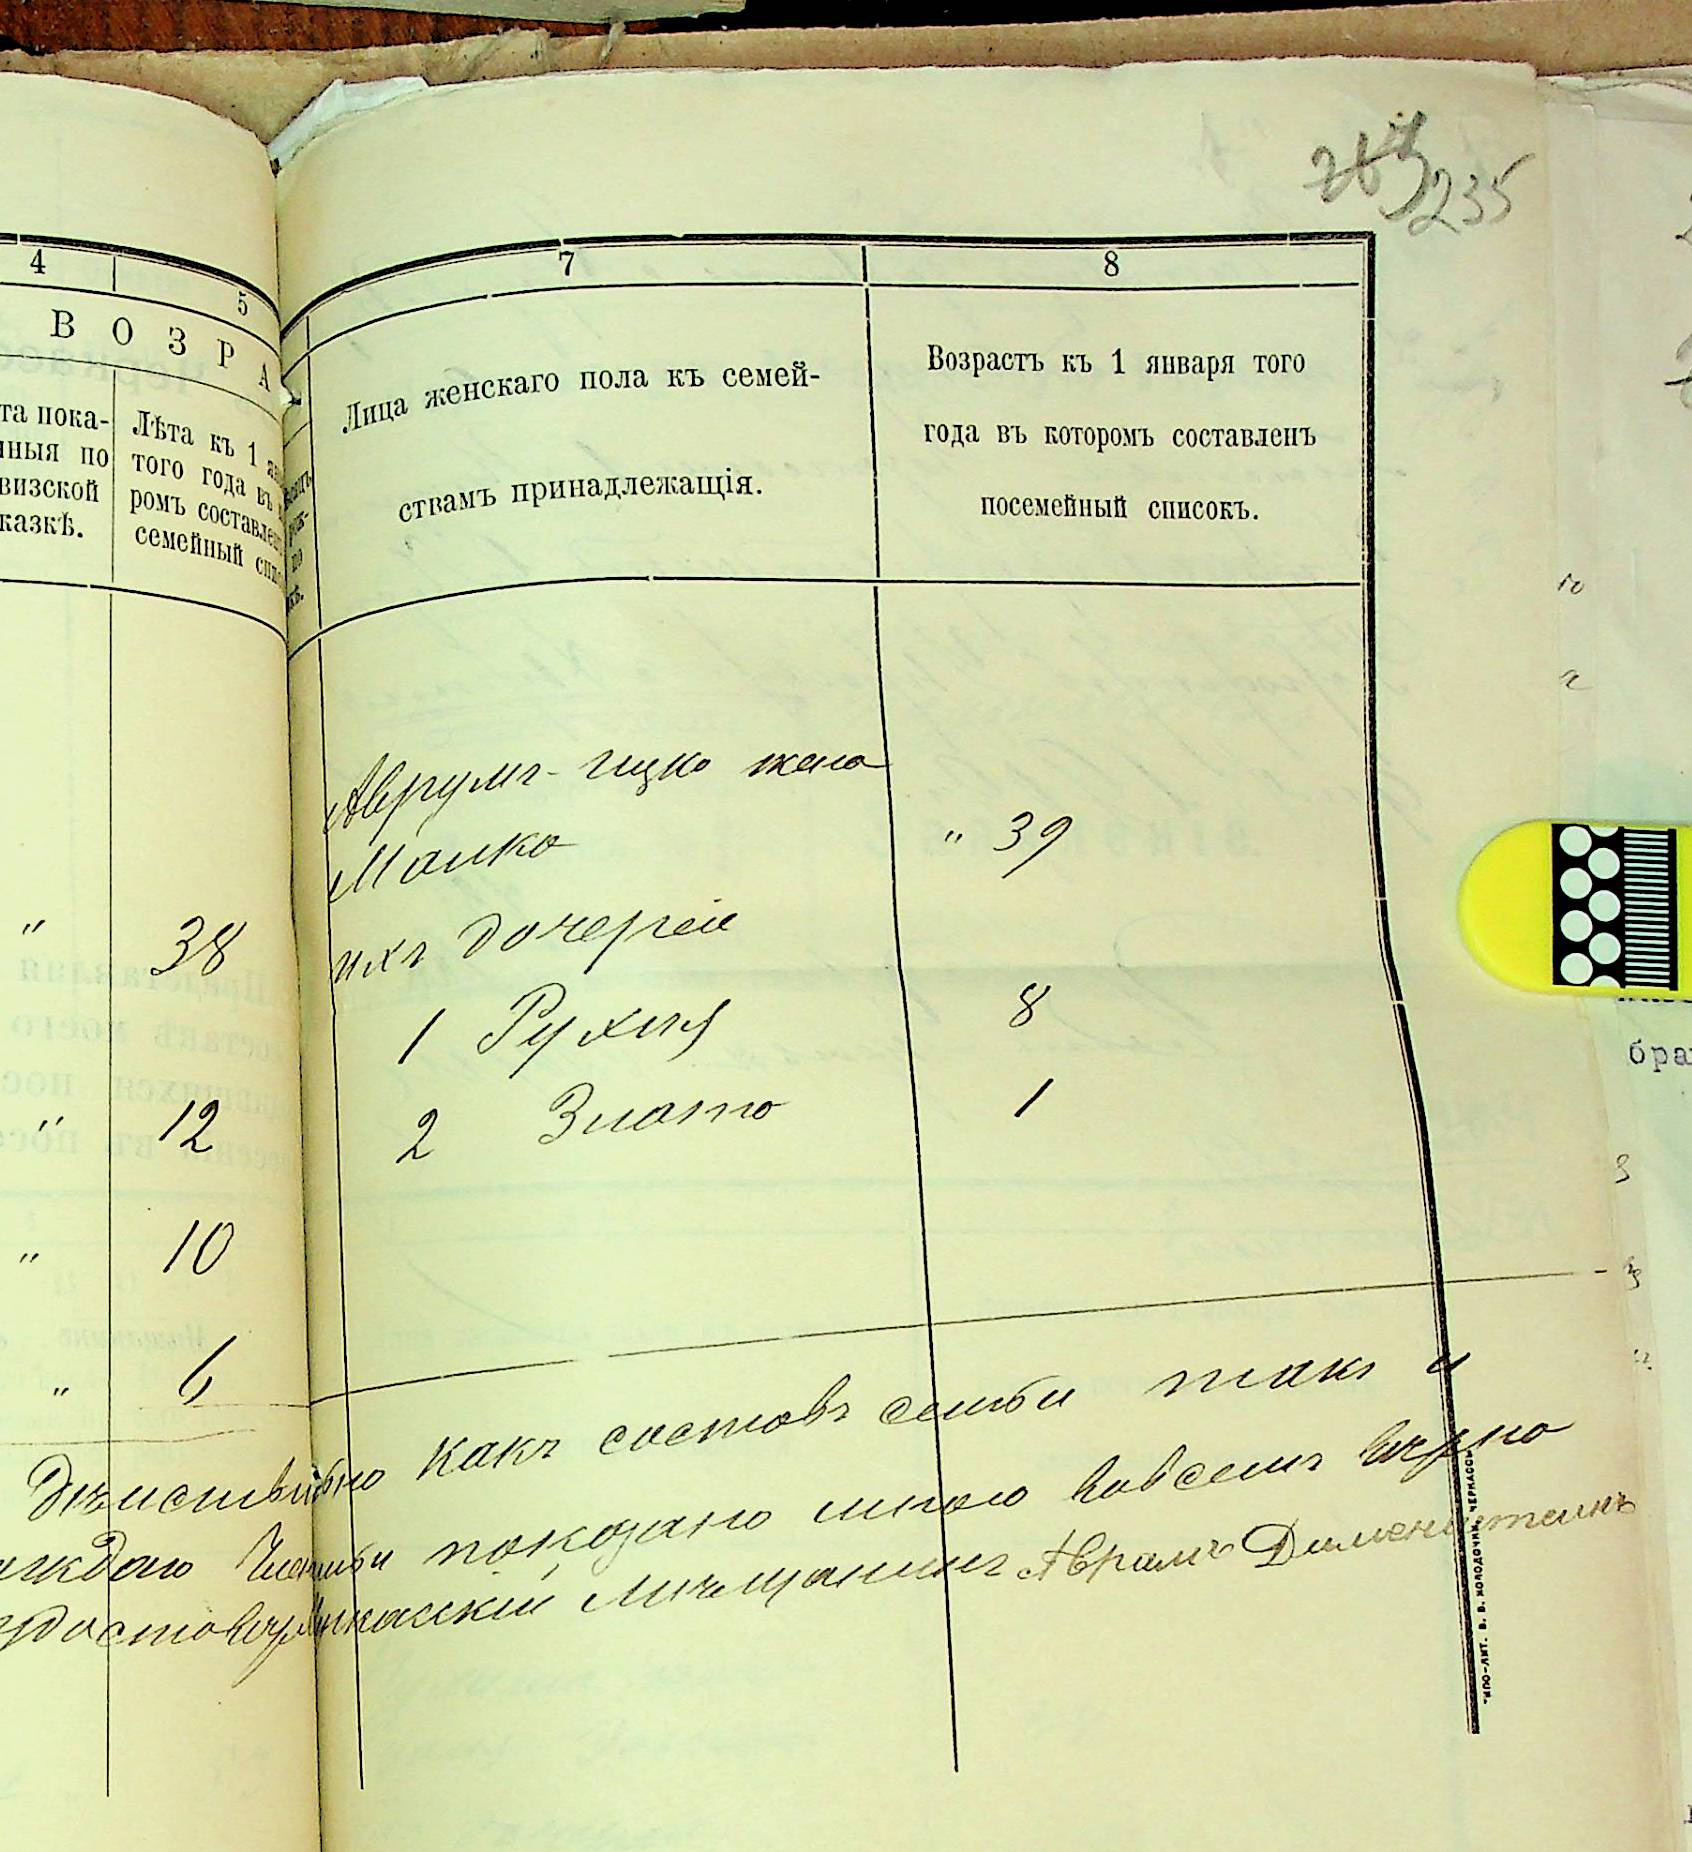 235
4
5
7
8
ВОЗРА
та пока-
нныя по
визской
казкѣ.
Лѣта къ 1
того года въ
ромъ составлен
семейный спи
Лица женскаго пола къ семей-
ствамъ принадлежащія.
Возрастъ къ 1 января того
года въ которомъ составленъ
посемейный списокъ.
Аврумъ-Ицко жена
Малка " 39
" 38
ихъ дочери
1 Рухля 8
" 12
2 Злата 1
" 10
" 6
какъ составъ семьи такъ и
показано мною во всемъ вѣрно
мѣщанинъ Аврамъ Дименштейнъ
бра